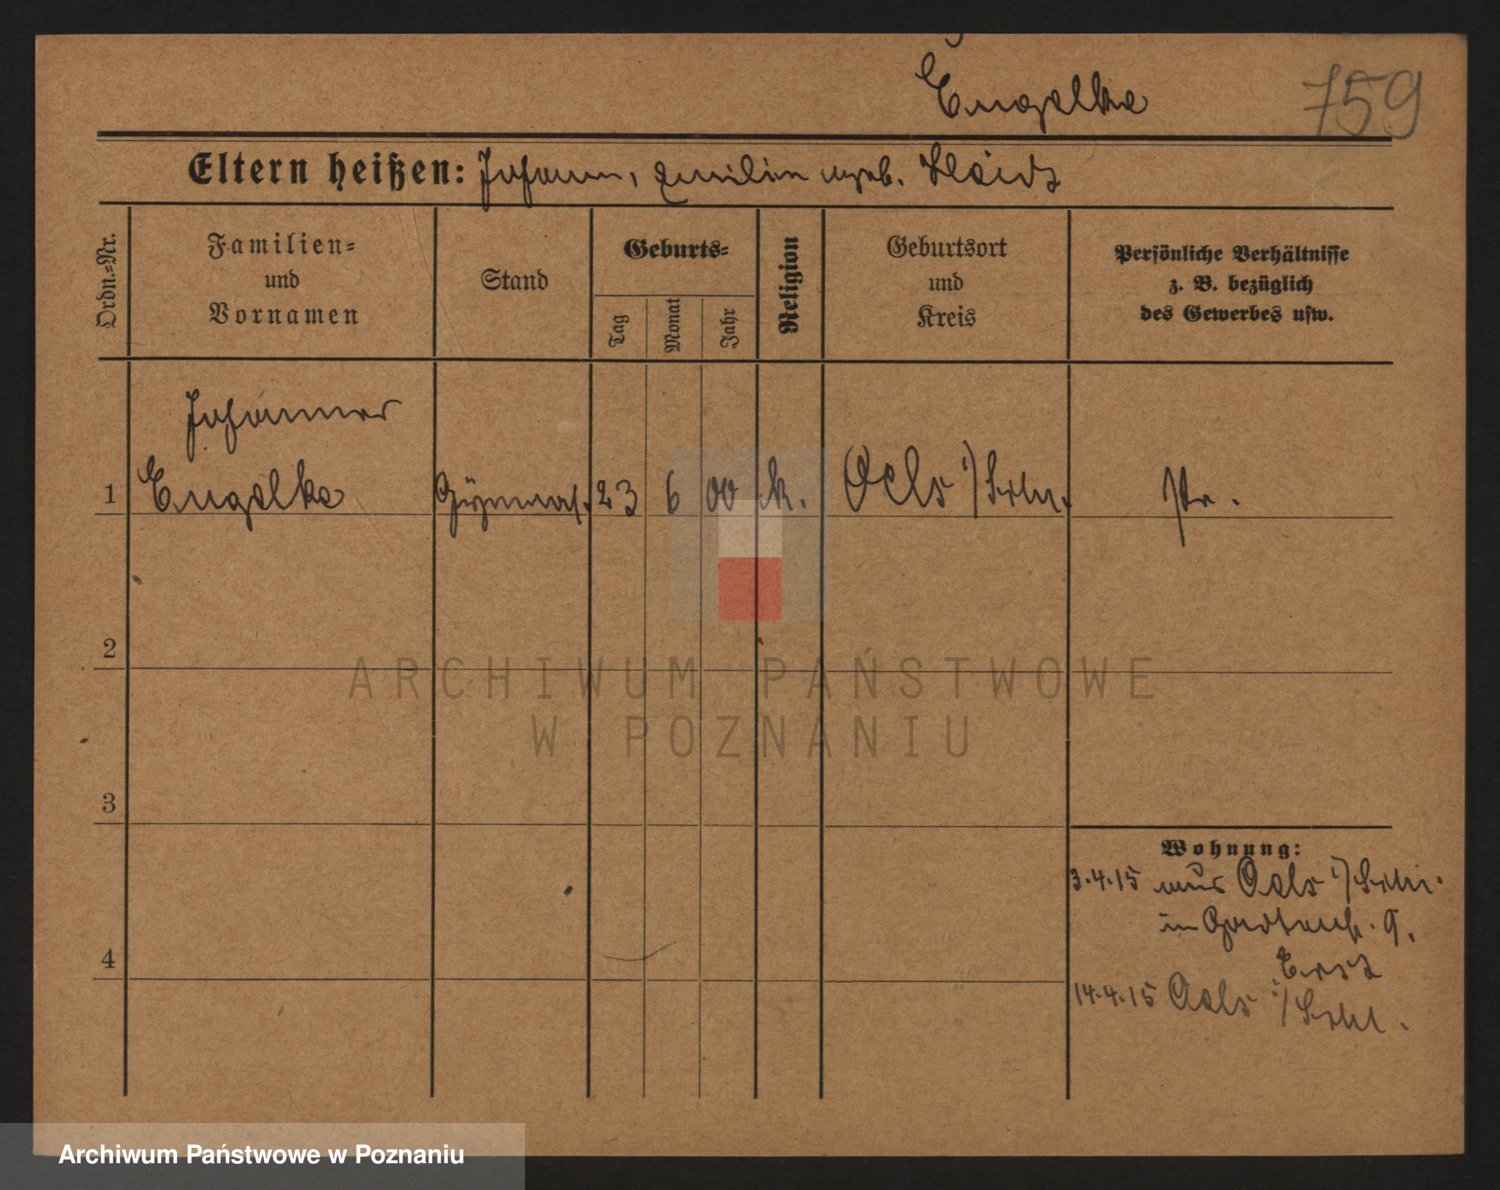 Engelke
759
Eltern heißen: Johann, Emilie geb.
Ordn.=Nr.
Familien=
und
Vornamen
Stand
Geburts=
Tag
Monat
Jahr
Religion
Geburtsort
und
Kreis
Persönliche Verhältnisse
z. B. bezüglich
des Gewerbes usw.
Johannes
1 Engelke Gymnas. 23 6 00 k. Oels i/Schl. Pr.
2
3
4
Wohnung:
3.4.15 aus Oels i/Schl.
in Gartenstr. 9.
14.4.15 Oels i/Schl.
ARCHIWUM PAŃSTWOWE
W POZNANIU
Archiwum Państwowe w Poznaniu